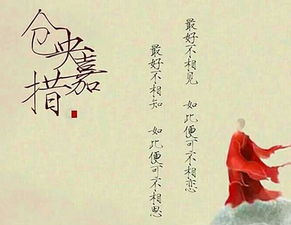 仓央嘉措
最好不相見 如此便可不相恋
最好不相知 如此便可不相思